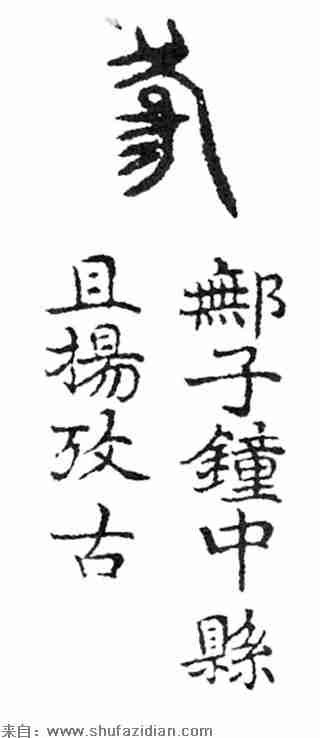 鄦子鐘中縣
且揚攷古
来自：www.shufazidian.com